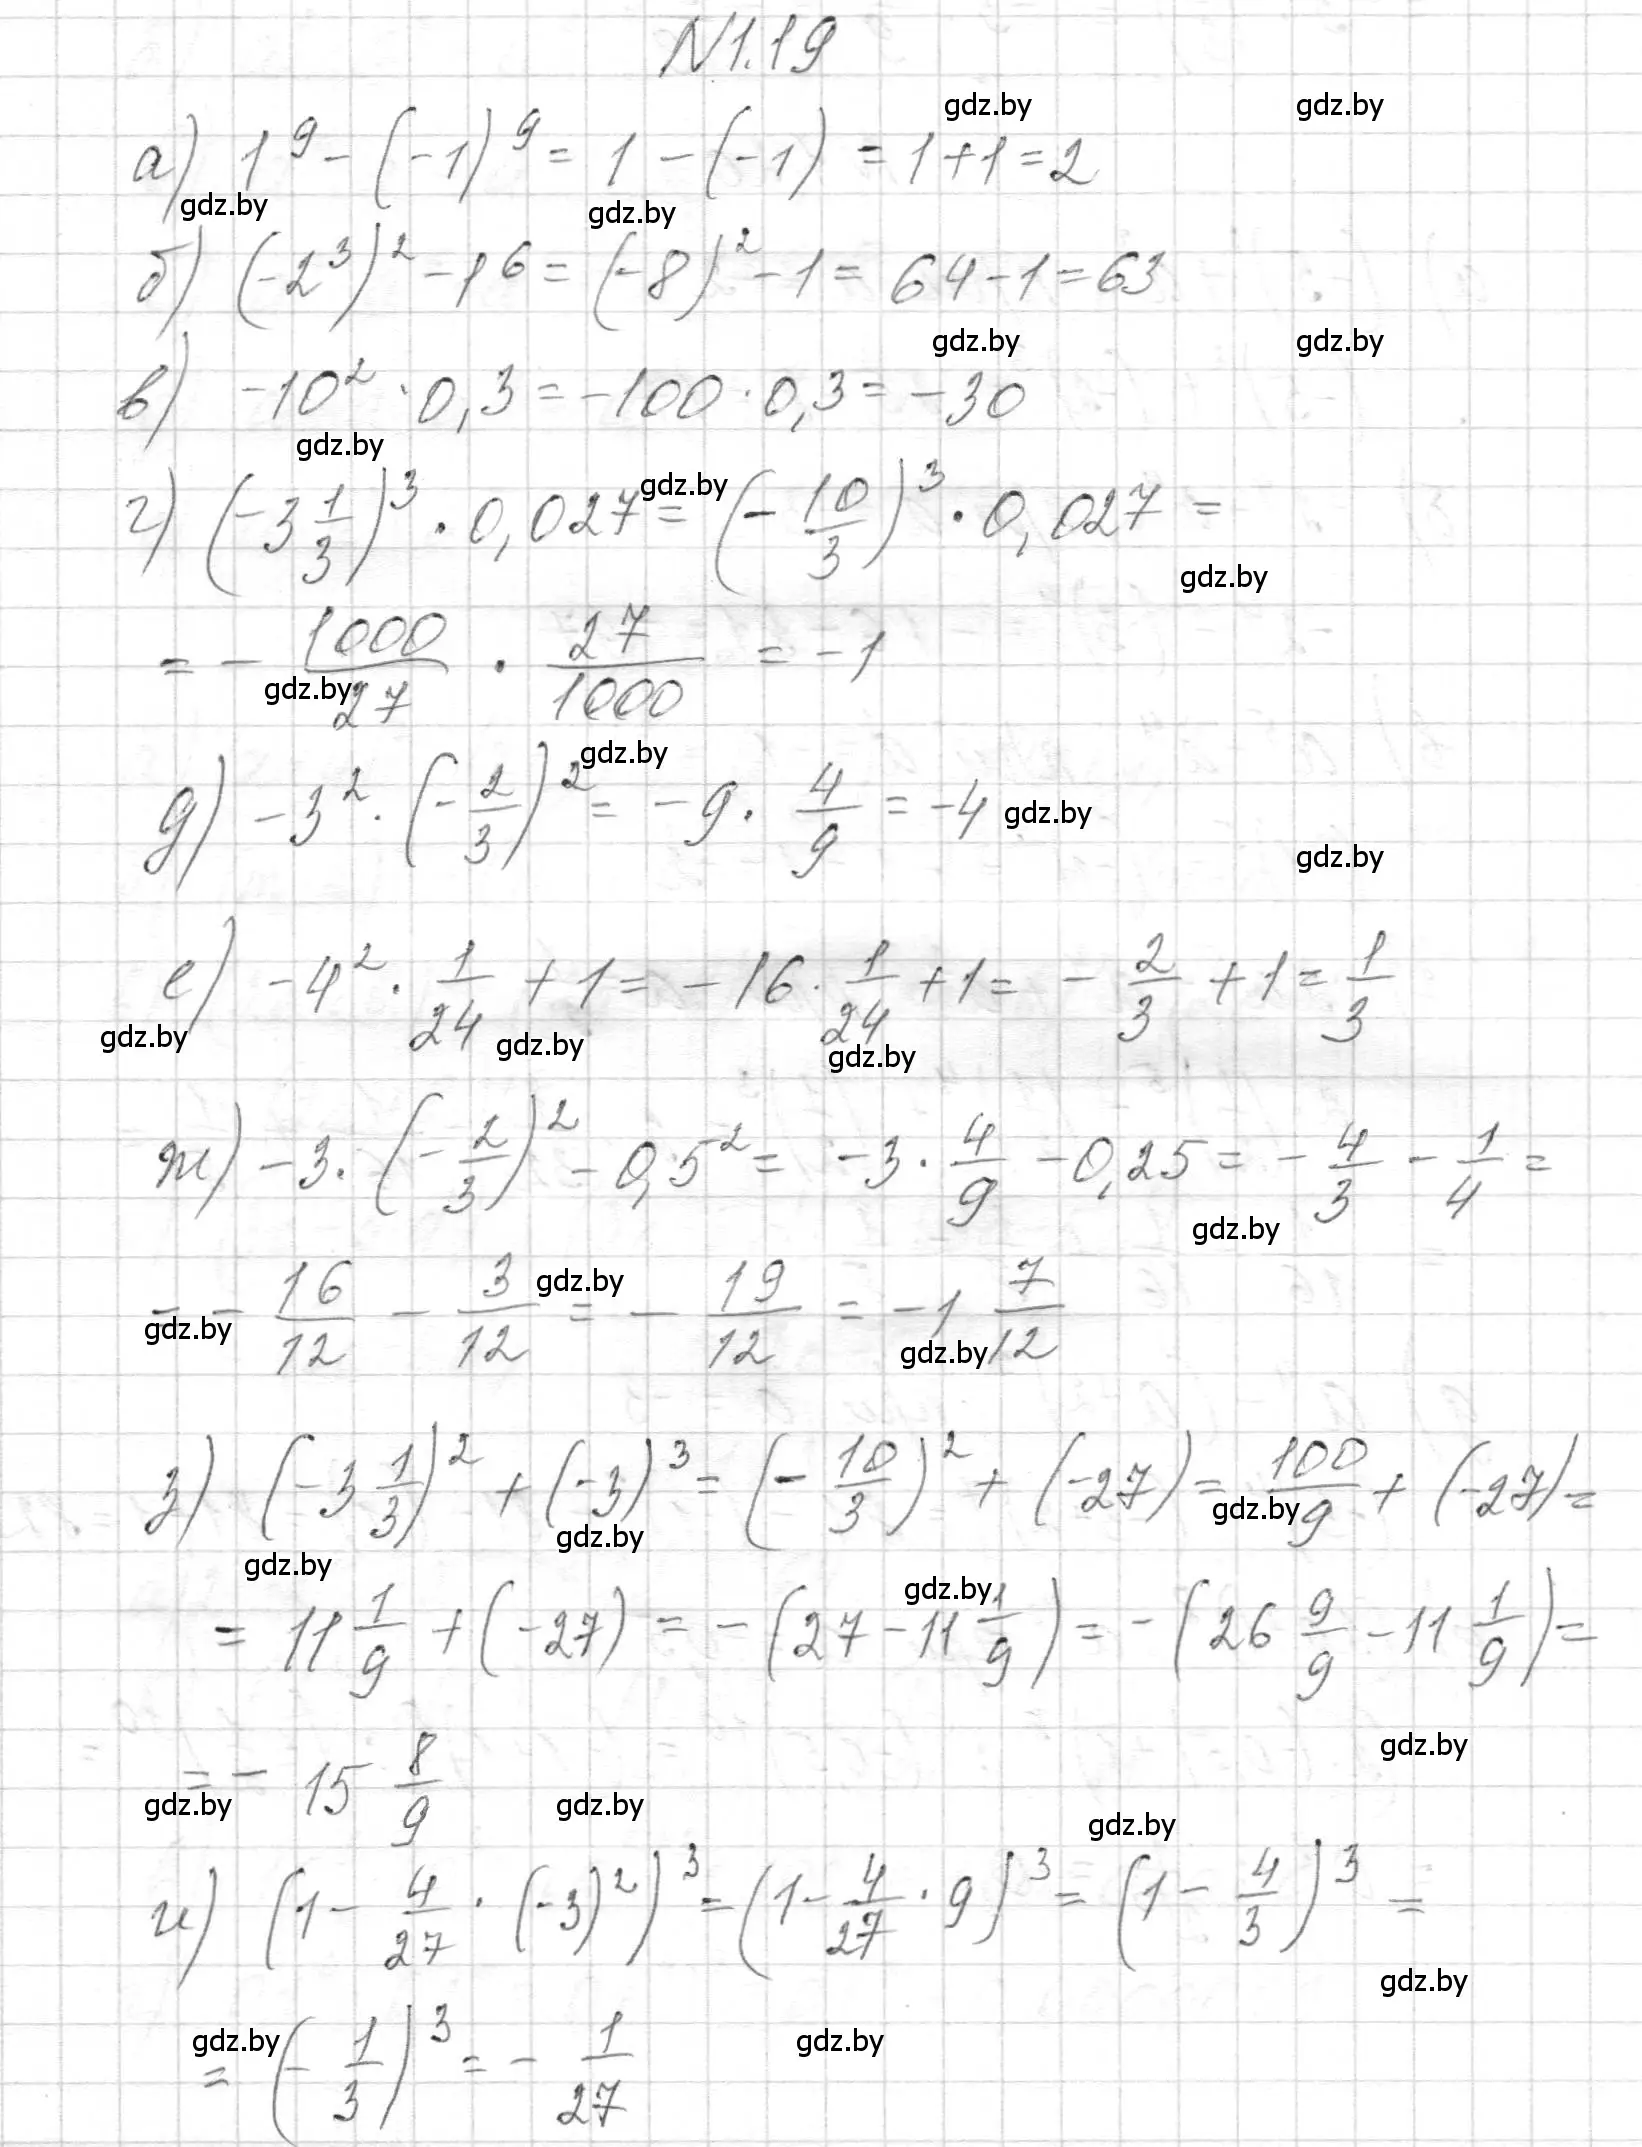 N1.19
gdz.by gdz.by
а) 1⁹ - (-1)⁹ = 1 - (-1) = 1+1 = 2
gdz.by gdz.by
б) (-2³)² - 1⁶ = (-8)² - 1 = 64 - 1 = 63
gdz.by gdz.by
в) -10² · 0,3 = -100 · 0,3 = -30
gdz.by gdz.by
г) (-3 1/3)³ · 0,027 = (-10/3)³ · 0,027 =
gdz.by
= - 1000/27 · 27/1000 = -1
gdz.by
gdz.by
д) -3² · (-2/3)² = -9 · 4/9 = -4 gdz.by
gdz.by
е) -4² · 1/24 + 1 = -16 · 1/24 + 1 = - 2/3 + 1 = 1/3
gdz.by gdz.by gdz.by
ж) -3 · (-2/3)² - 0,5² = -3 · 4/9 - 0,25 = - 4/3 - 1/4 =
gdz.by
gdz.by
= - 16/12 - 3/12 = - 19/12 = -1 7/12
gdz.by gdz.by
з) (-3 1/3)² + (-3)³ = (-10/3)² + (-27) = 100/9 + (-27) =
gdz.by gdz.by gdz.by
gdz.by
= 11 1/9 + (-27) = -(27 - 11 1/9) = -(26 9/9 - 11 1/9) =
gdz.by
= - 15 8/9
gdz.by gdz.by gdz.by
и) (1 - 4/27 · (-3)²)³ = (1 - 4/27 · 9)³ = (1 - 4/3)³ =
gdz.by
gdz.by gdz.by
= (-1/3)³ = - 1/27